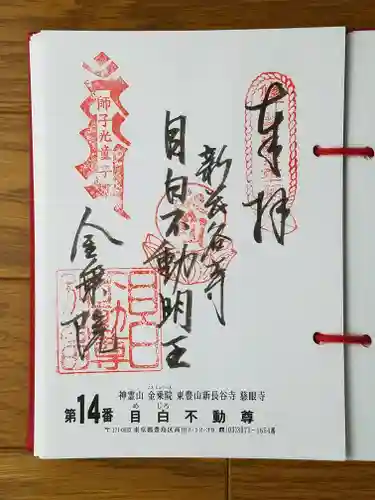 奉拝
新長谷寺
目白不動明王
金乗院
師子光童子
目白不動尊
神霊山 金乗院 東豊山新長谷寺 慈眼寺
こんじょういん
め じろ
第14番 目白不動尊
東京都豊島区高田2-12-39